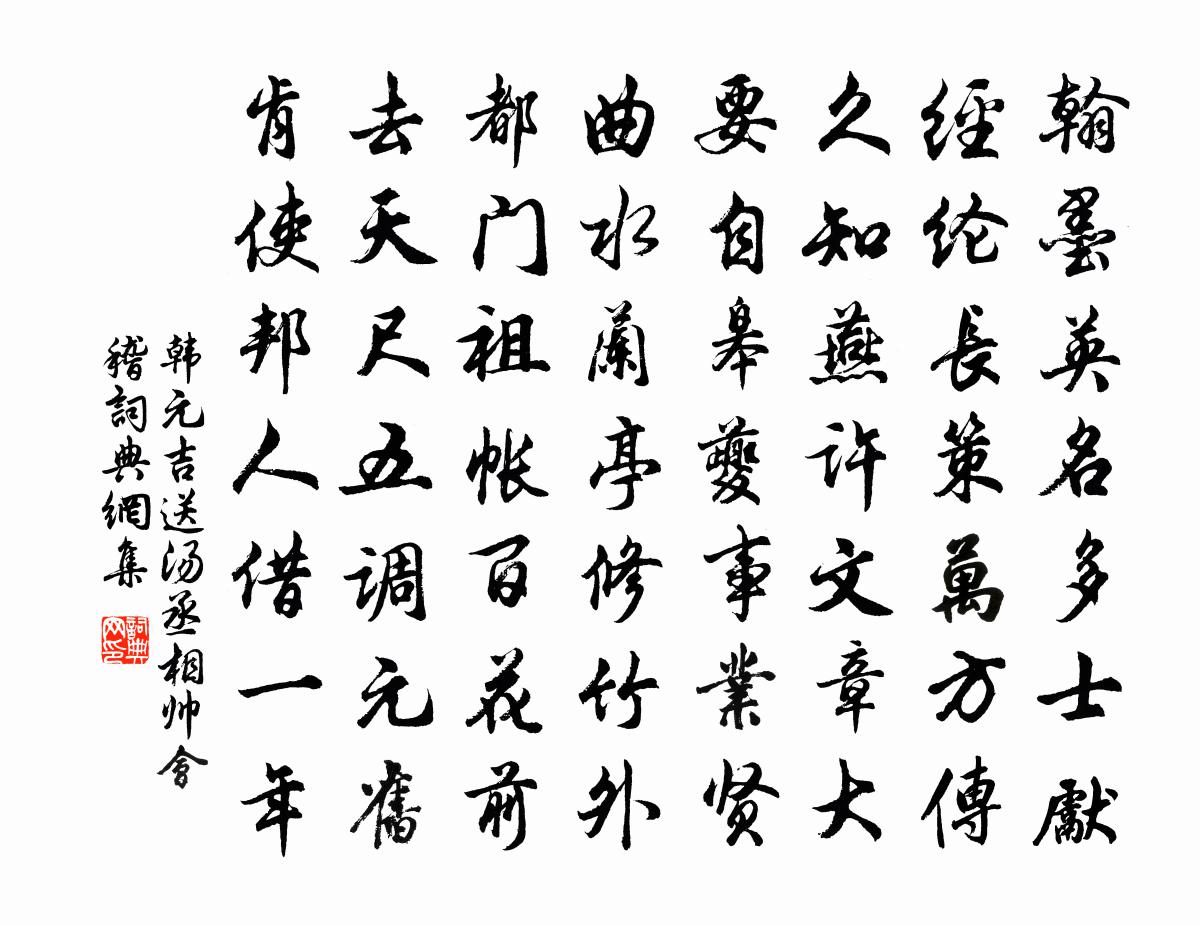 翰墨英名多士獻
經纶長策萬方傳
久知燕许文章大
要自皋夔事業贤
曲水蘭亭修竹外
都门祖帐百花前
去天尺五调元舊
肯使邦人借一年
韩元吉送汤丞相帅會
稽詞典網集
詞典网印